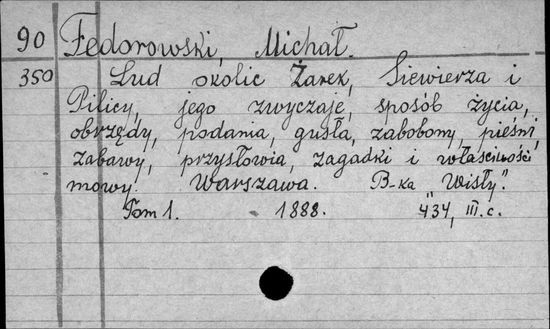 90 Fedorowski, Michał.
350 Lud okolic Żarek, Siewierza i
Pilicy, jego zwyczaje, sposób życia,
obrzędy, podania, gusła, zabobony, pieśni,
zabawy, przysłowia, zagadki i właściwości
mowy. Warszawa. B-ka "Wisły".
Tom 1. 1888. 434, III. c.